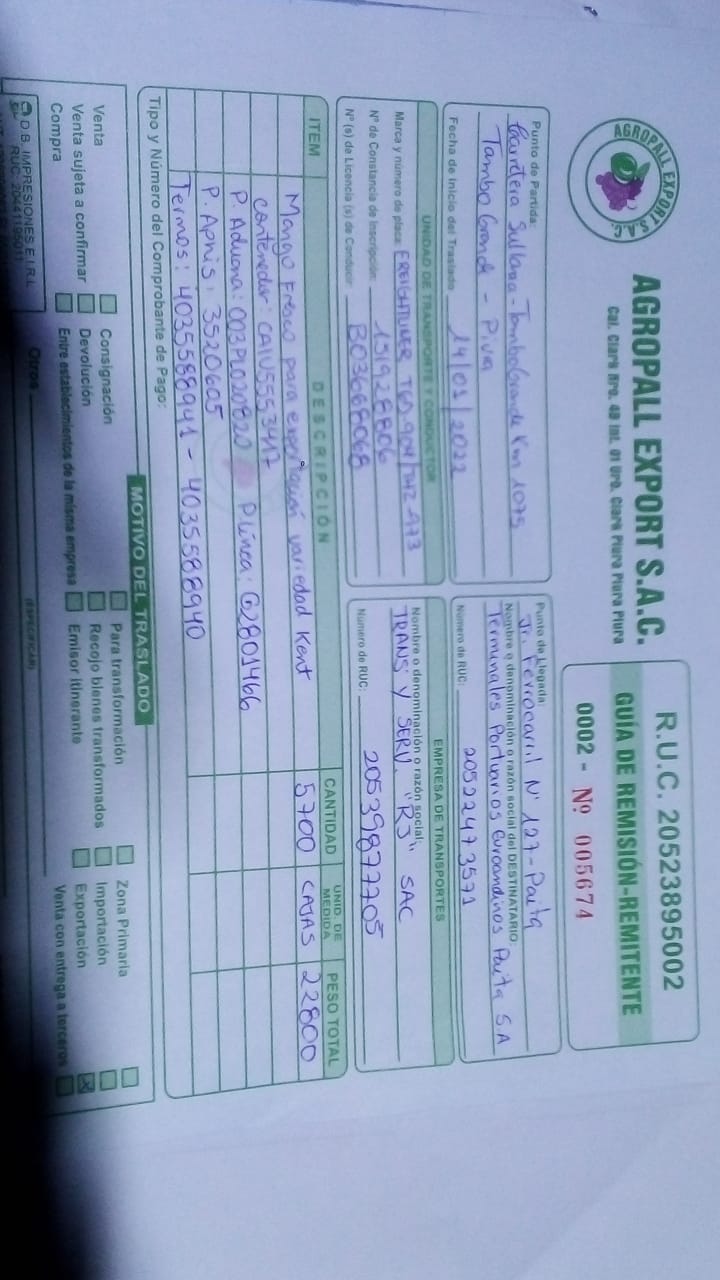 AGROPALL EXPORT S.A.C.
AGROPALL EXPORT S.A.C.
Cal. Clark Nro. 48 Int. 01 Urb. Clark Piura Piura Piura
R.U.C. 20523895002
GUÍA DE REMISIÓN-REMITENTE
0002 - Nº 005674
Punto de Partida:
Carretera Sullana-TamboGrande Km 1075
Tambo Grande - Piura
Fecha de Inicio del Traslado 14/01/2022
Punto de Llegada:
Jr. Ferrocarril Nº 127 - Paita
Nombre o denominación o razón social del DESTINATARIO:
Terminales Portuarios Euroandinos Paita S.A
Número de RUC: 20522473571
UNIDAD DE TRANSPORTE Y CONDUCTOR
Marca y número de placa: FREIGHTLINER
Nº de Constancia de Inscripción: 151928806
Nº (s) de Licencia (s) de Conducir: B03668068
EMPRESA DE TRANSPORTES
Nombre o denominación o razón social:
TRANS Y SERV. "R3" SAC
Número de RUC: 20539877705
ITEM DESCRIPCIÓN CANTIDAD UNID. DE MEDIDA PESO TOTAL
Mango Fresco para exportación variedad Kent 5700 CAJAS 22800
Contenedor: CAIU5553417
P. Aduana: 003PL020820 P Línea: G2801466
P. Apnis: 3520605
Termos: 4035588941 - 4035588940
Tipo y Número del Comprobante de Pago:
MOTIVO DEL TRASLADO
Venta Consignación Para transformación Zona Primaria
Venta sujeta a confirmar Devolución Recojo bienes transformados Importación
Compra Entre establecimientos de la misma empresa Emisor itinerante Exportación X
Venta con entrega a terceros
Otros
(ESPECIFICAR)
D.B. IMPRESIONES E.I.R.L